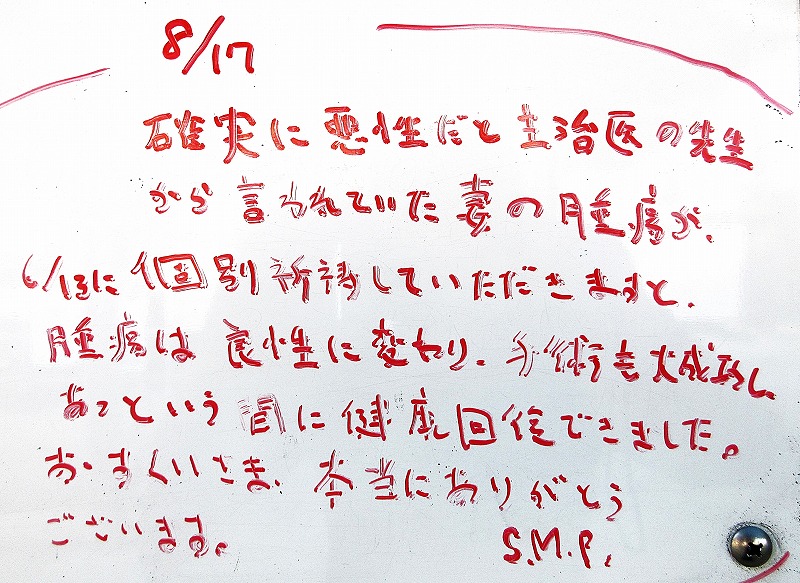 8/17
確実に悪性だと主治医の先生
から言われていた妻の腫瘍が、
6/13に個別祈祷していただきますと、
腫瘍は良性に変わり、手術も大成功し、
あっという間に健康回復できました。
お・すくいさま、本当にありがとう
ございます。
S.M.P.